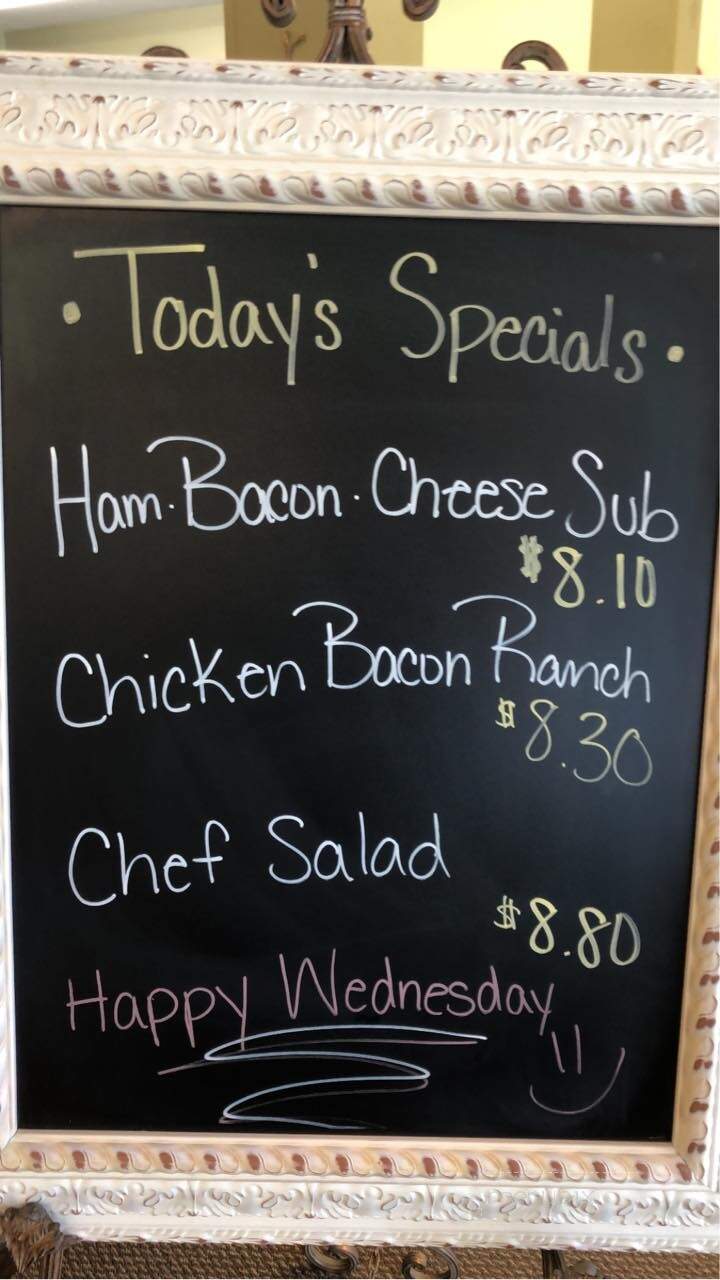 · Today's Specials ·
Ham·Bacon·Cheese Sub
$8.10
Chicken Bacon Ranch
$8.30
Chef Salad
$8.80
Happy Wednesday